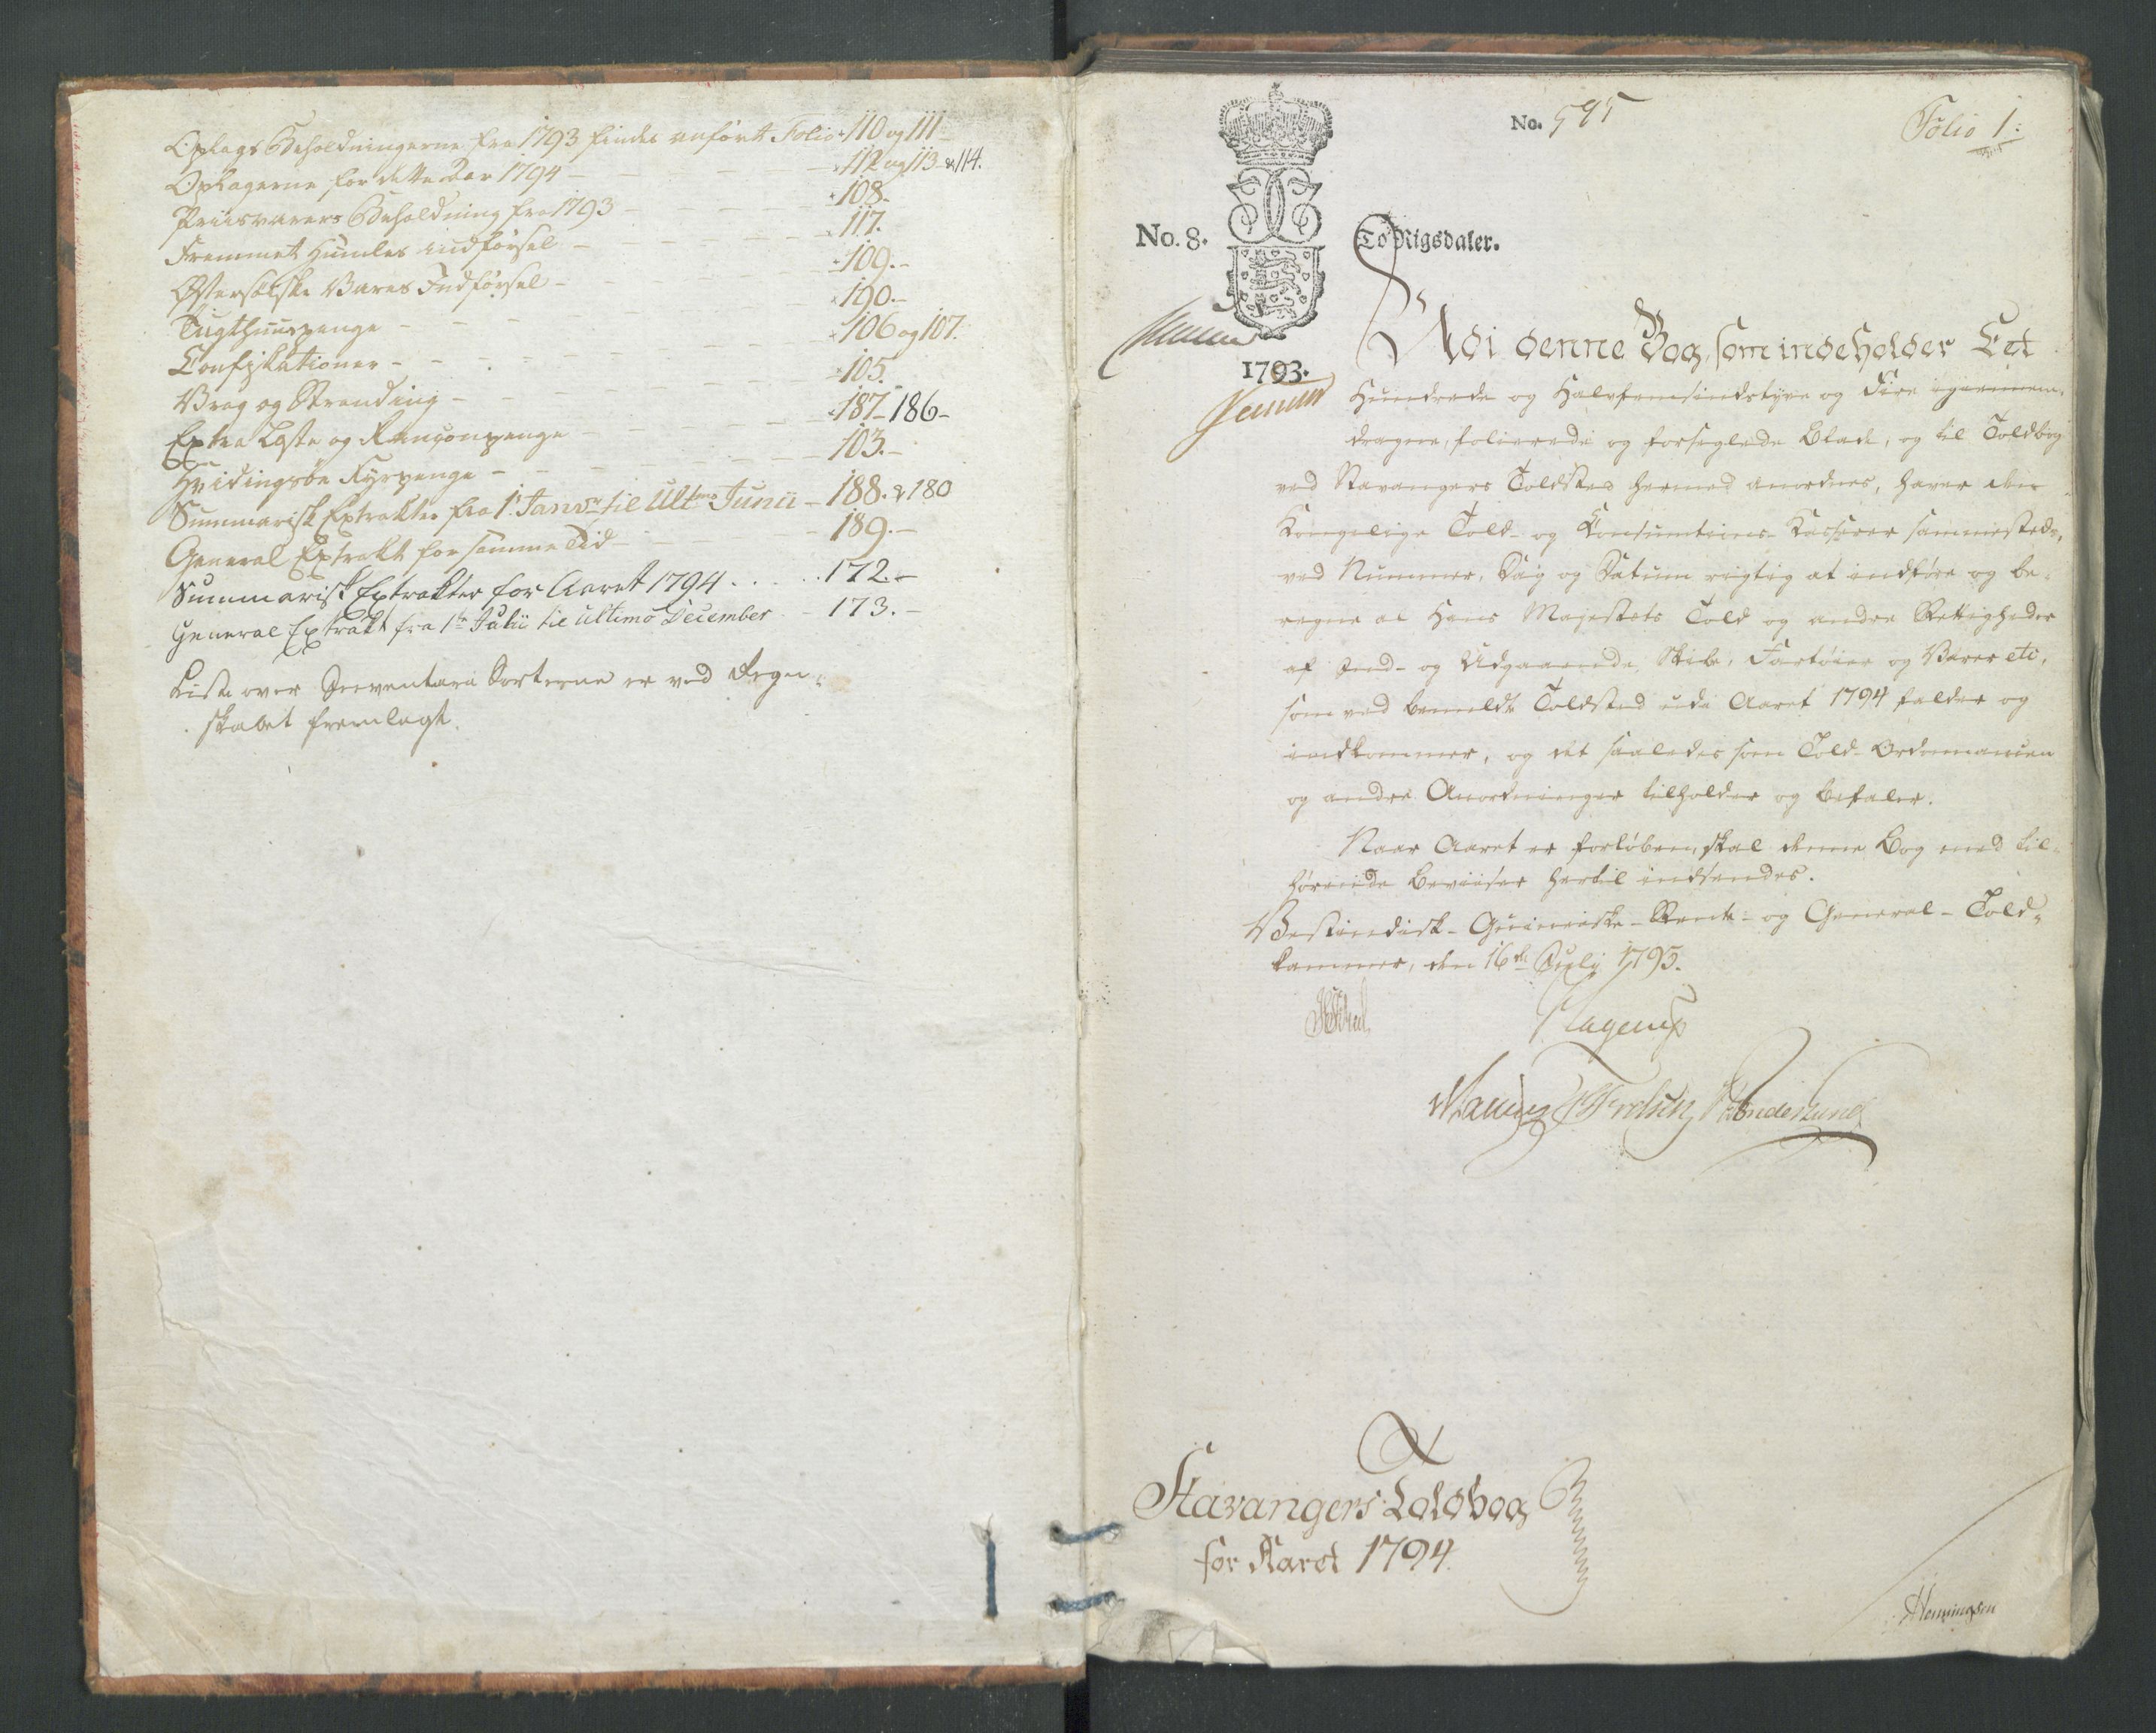 Oplags Beholdningerne fra 1793 findes anført Folio 110 og 111
Oplagerne for dette Aar 1794 - 112 og 113 & 114.
Priisvarers Beholdning fra 1793 - 108.
Fremmet Humles indførsel - 117.
Østersøiske Vares Indførsel - 109.-
Tugthuuspenge - 190.-
Confiskationer - 106 og 107.
Vrag og Stranding - 105.
Extra Læste og Rançonpenge - 187-186-
Hvidingsøe Fyrpenge - 103.-
Summarisk Extrakter fra 1. Janv. til Ultmo Junii - 188. & 180
General Extrakt for samme Tid - 189.-
Summarisk Extrakter for Aaret 1794 . . . . . 172.-
General Extrakt fra 1te Julii til ultimo December - 173.-
Liste over Inventarii Sorterne er ved Regn-
skabet fremlagt.
No. 595
Folio 1:
No. 8.
To Rigsdaler.
1793.
Udi denne Bog, som indeholder Eet
Hundrede og Halvfemsindstyve og Fire igiennem-
dragne, folierede og forseglede Blade, og til Toldbog
ved Stavangers Toldsted hermed anordnes, haver den
Kongelige Told- og Consumtions-Casserer sammesteds,
ved Nummer, Dag og Datum rigtig at indføre og be-
regne al Hans Majestæts Told og andre Rettigheder
af Ind- og Udgaaende Skibe, Fartøier og Varer etc,
som ved bemeldte Toldsted udi Aaret 1794 falder og
indkommer, og det saaledes som Told-Ordonnancen
og andre Anordninger tilholder og befaler.
Naar Aaret er forløben, skal denne Bog med til-
hørende Beviiser hertil indsendes.
Vestindisk-Guineiske-Rente- og General-Told-
kammer, den 16de July 1793.
Hagerup
Stavangers Toldbog
for Aaret 1794.
Henningsen